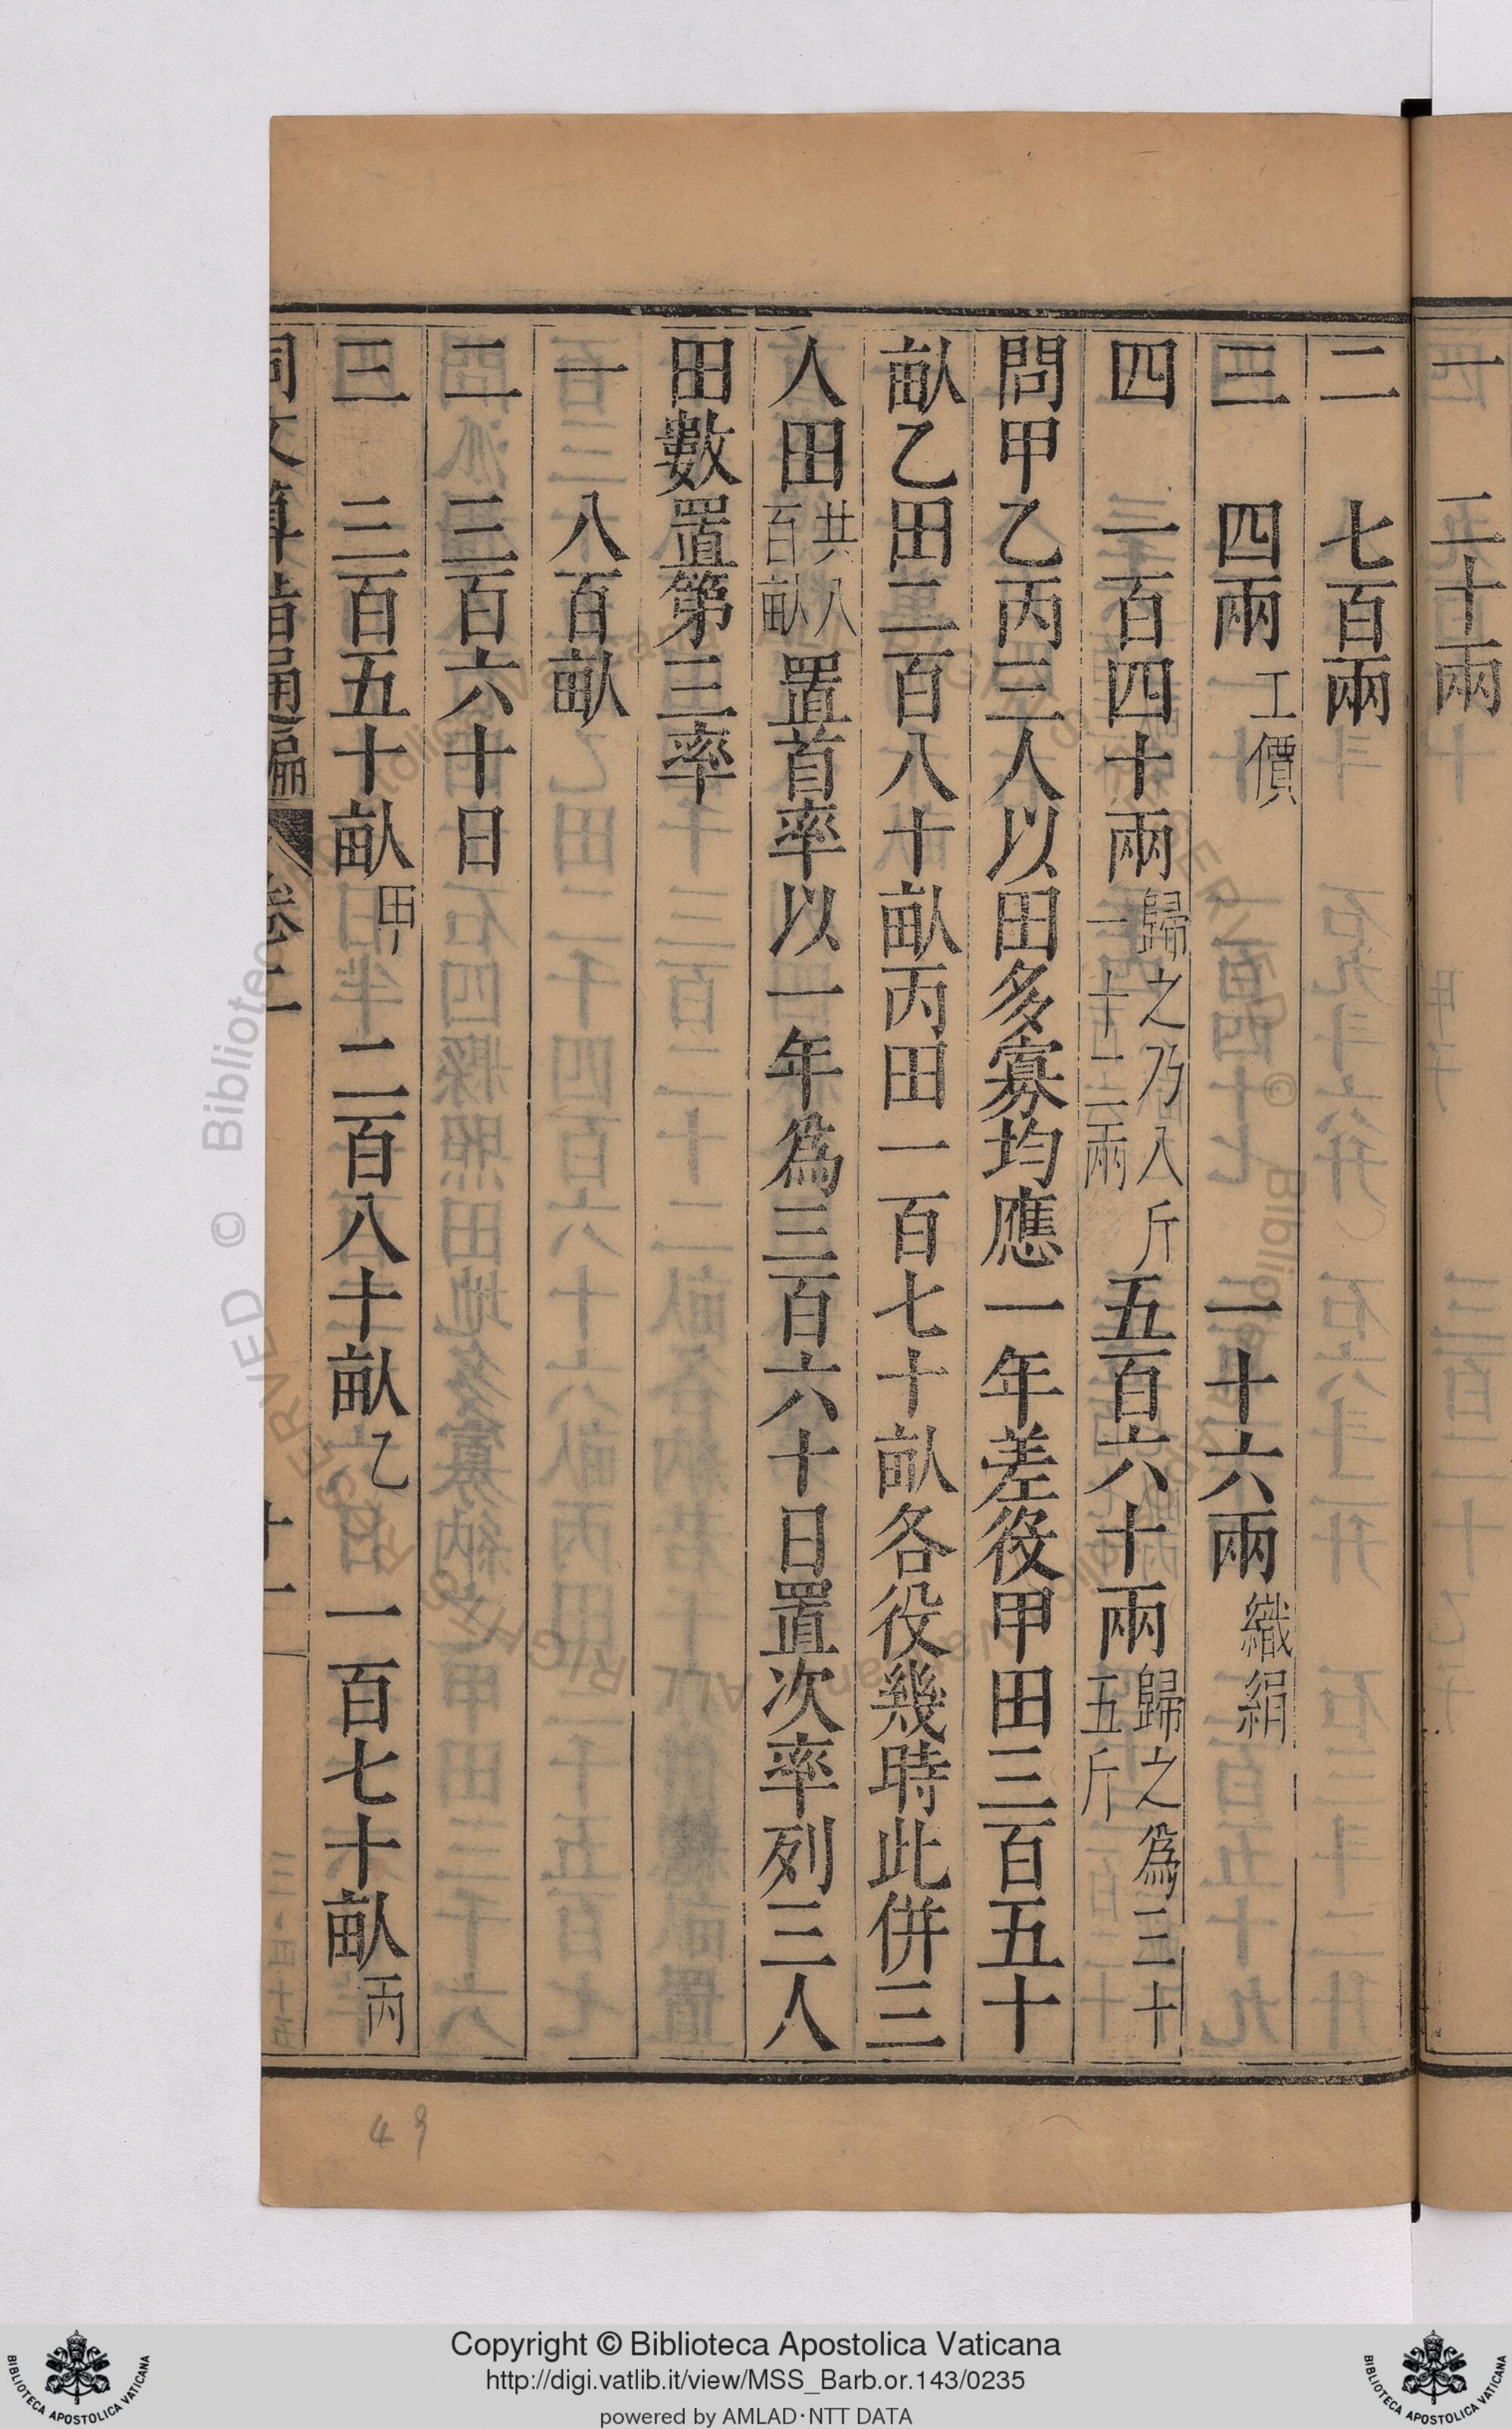 二 七百兩
三 四兩 工價 一十六兩 織絹
四 一百四十兩 歸之乃八斤一十二兩 五百六十兩 歸之為三十五斤
問甲乙丙三人以田多寡均應一年差役甲田三百五十
畝乙田二百八十畝丙田一百七十畝各役幾時此併三
人田 共八百畝 置首率以一年為三百六十日置次率列三人
田數置第三率
一 八百畝
二 三百六十日
三 三百五十畝 甲 二百八十畝 乙 一百七十畝 丙
同文算指通編 卷二 十一
49
Copyright © Biblioteca Apostolica Vaticana
http://digi.vatlib.it/view/MSS_Barb.or.143/0235
powered by AMLAD·NTT DATA
BIBLIOTECA APOSTOLICA VATICANA
BIBLIOTECA APOSTOLICA VATICANA